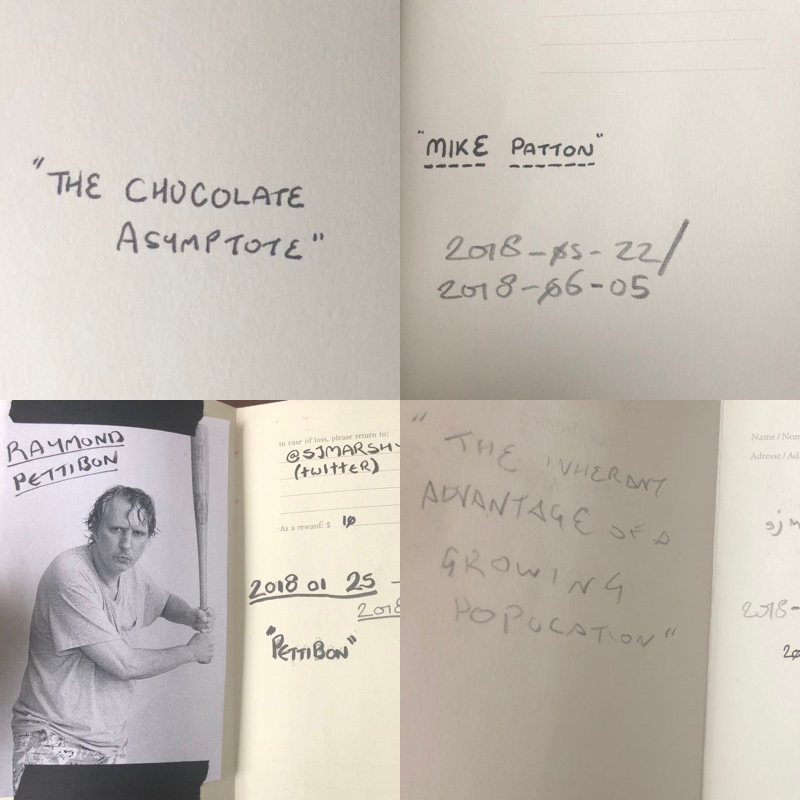 "THE CHOCOLATE
ASYMPTOTE"
"MIKE PATTON"
2018-05-22/
2018-06-05
RAYMOND
PETTIBON
In case of loss, please return to:
@SJMARSHY
(twitter)
As a reward: $ 10
2018 01 25 -
2018
"PETTIBON"
"THE INHERANT
ADVANTAGE OF A
GROWING
POPULATION"
Name / Nom
Adresse / Ad
sj m
2018-
20